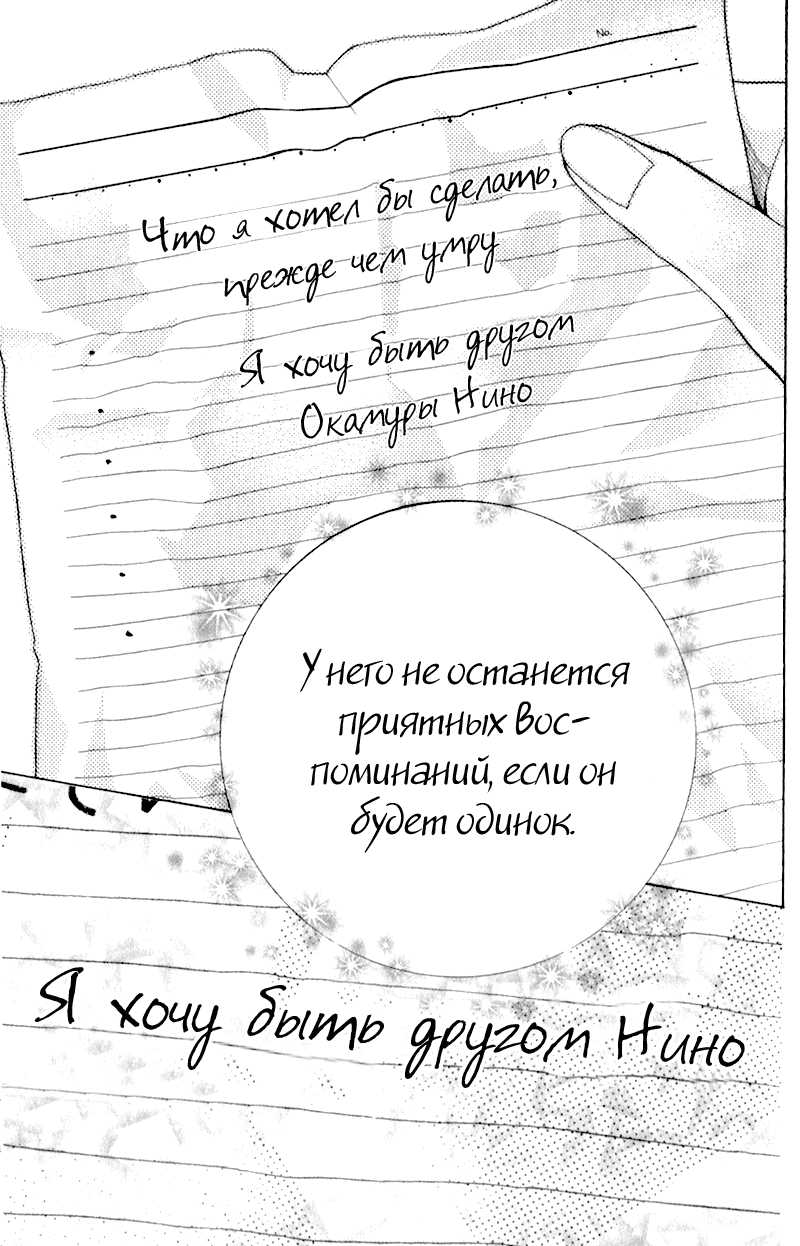 No.
Что я хотел бы сделать,
прежде чем умру
Я хочу быть другом
Окамуры Нино
У него не останется
приятных вос-
поминаний, если он
будет одинок.
Я хочу быть другом Нино